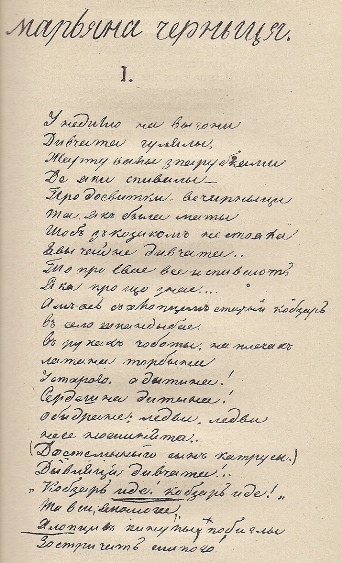 марьяна черныця.
I.
У недилю на выгони
Дивчата гулялы,
Жартувалы з парубкамы
Де яки спивалы
Про досвитки вечерныци
Та якъ была маты
Щобъ зъ козакомъ не стояла
Звычайне дивчата..
То про свое все и спивають
Яка про що знае...
Ажъ ось съ хлопцемъ старый кобзарь
въ село шкандыбае.
въ рукахъ чоботы, на плечахъ
латана торбына
У старого, а дытына!
Сердешна дытына!
обидране; ледви, ледви
несе ноженята..
(Достеменный сынъ катрусы.)
Дывляця дивчата!.
„Кобзарь иде! кобзарь иде!„
Та вси, якомога,
Хлопцивъ кынулы, побиглы
Зострічать слипого